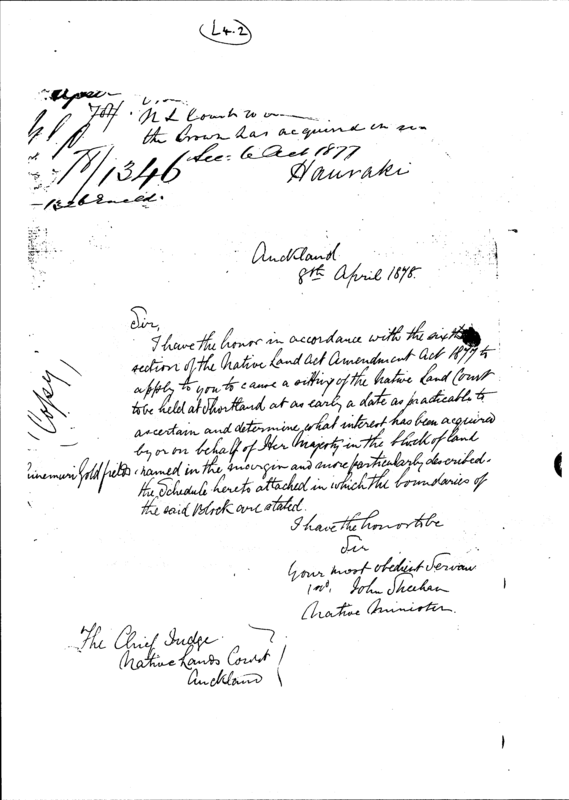 L4.2
N L Court
the Crown has acquired in
Sec: 6 Act 1877
78/1346
Hauraki
Auckland
8th April 1878.
Sir,
I have the honor in accordance with the sixth
section of the Native Land Act Amendment Act 1877 to
apply to you to cause a sitting of the Native Land Court
to be held at Shortland at as early a date as practicable to
ascertain and determine what interest has been acquired
by or on behalf of Her Majesty in the block of land
named in the margin and more particularly described
the Schedule hereto attached in which the boundaries of
the said Block are stated.
(Copy)
Goldfields
I have the honor to be
Sir
Your most obedient Servan
John Sheehan
Native Minister.
The Chief Judge
Native Lands Court
Auckland